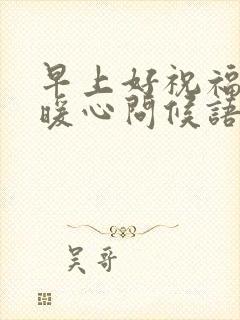 早上好祝福
暖心問候語
吳哥